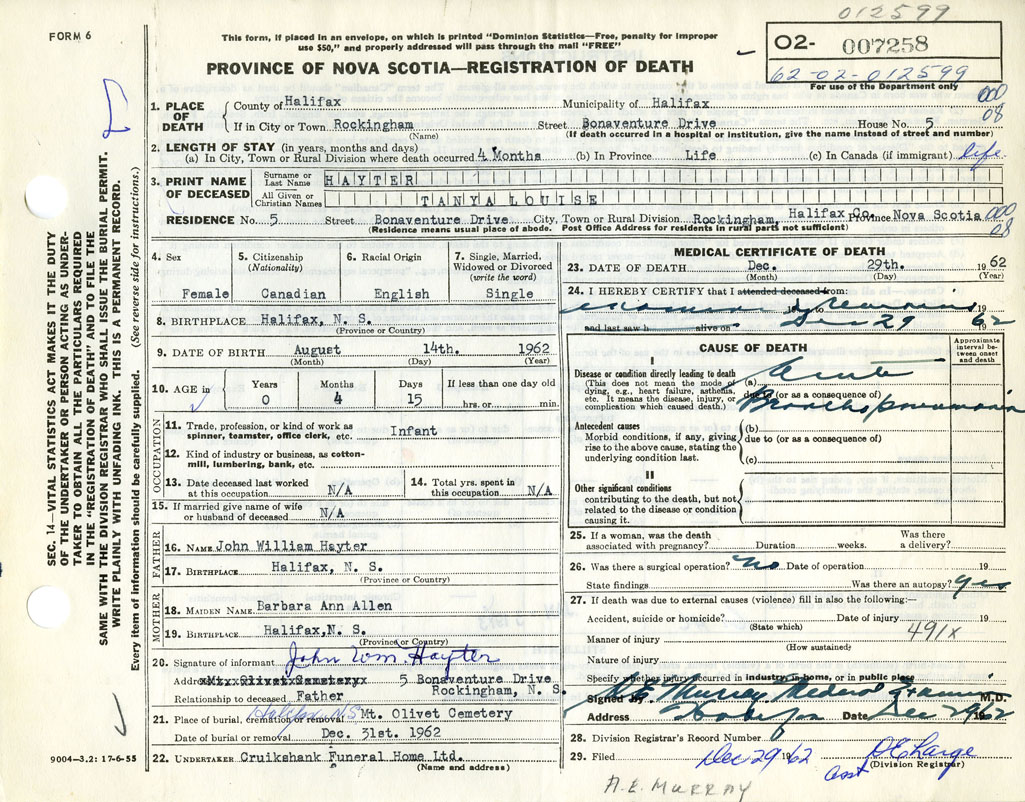 012599
FORM 6
This form, if placed in an envelope, on which is printed "Dominion Statistics—Free, penalty for improper
use $50," and properly addressed will pass through the mail "FREE"
O2- 007258
62-02-012599
For use of the Department only
PROVINCE OF NOVA SCOTIA—REGISTRATION OF DEATH
1. PLACE OF DEATH County of Halifax Municipality of Halifax 000
If in City or Town Rockingham Street Bonaventure Drive House No. 5 08
(Name) (If death occurred in a hospital or institution, give the name instead of street and number)
2. LENGTH OF STAY (in years, months and days)
(a) In City, Town or Rural Division where death occurred 4 Months (b) In Province Life (c) In Canada (if immigrant) life
3. PRINT NAME OF DECEASED Surname or Last Name HAYTER
All Given or Christian Names TANYA LOUISE
RESIDENCE No. 5 Street Bonaventure Drive City, Town or Rural Division Rockingham, Halifax Co. Province Nova Scotia 000
(Residence means usual place of abode. Post Office Address for residents in rural parts not sufficient) 08
4. Sex Female
5. Citizenship (Nationality) Canadian
6. Racial Origin English
7. Single, Married, Widowed or Divorced (write the word) Single
8. BIRTHPLACE Halifax, N. S.
(Province or Country)
9. DATE OF BIRTH August 14th. 1962
(Month) (Day) (Year)
10. AGE in Years 0 Months 4 Days 15 If less than one day old hrs. or min.
OCCUPATION
11. Trade, profession, or kind of work as spinner, teamster, office clerk, etc. Infant
12. Kind of industry or business, as cotton-mill, lumbering, bank, etc.
13. Date deceased last worked at this occupation N/A
14. Total yrs. spent in this occupation N/A
15. If married give name of wife or husband of deceased N/A
FATHER
16. NAME John William Hayter
17. BIRTHPLACE Halifax, N. S.
(Province or Country)
MOTHER
18. MAIDEN NAME Barbara Ann Allen
19. BIRTHPLACE Halifax,N. S.
(Province or Country)
20. Signature of informant John Wm. Hayter
Address Mt. Olivet Cemetery 5 Bonaventure Drive
Rockingham, N. S.
Relationship to deceased Father
21. Place of burial, cremation or removal Halifax N.S Mt. Olivet Cemetery
Date of burial or removal Dec. 31st. 1962
22. UNDERTAKER Cruikshank Funeral Home Ltd.
(Name and address)
9004—3.2: 17-6-55
MEDICAL CERTIFICATE OF DEATH
23. DATE OF DEATH Dec. 29th. 1962
(Month) (Day) (Year)
24. I HEREBY CERTIFY that I attended deceased from:
19
and last saw h alive on Dec 29 1962
CAUSE OF DEATH
Approximate interval between onset and death
I
Disease or condition directly leading to death
(This does not mean the mode of dying, e.g., heart failure, asthenia, etc. It means the disease, injury, or complication which caused death.)
(a) Acute
due to (or as a consequence of)
Bronchopneumonia
Antecedent causes
Morbid conditions, if any, giving rise to the above cause, stating the underlying condition last.
(b)
due to (or as a consequence of)
(c)
II
Other significant conditions
contributing to the death, but not related to the disease or condition causing it.
25. If a woman, was the death associated with pregnancy? Duration weeks. Was there a delivery?
26. Was there a surgical operation? No Date of operation 19
State findings Was there an autopsy? yes
27. If death was due to external causes (violence) fill in also the following:—
Accident, suicide or homicide? Date of injury 19
(State which)
491X
Manner of injury
(How sustained)
Nature of injury
Specify whether injury occurred in industry in home, or in public place
Signed by A E Murray Medical Examiner M.D.
Address Halifax Date Dec 29 1962
28. Division Registrar's Record Number
29. Filed Dec 29 1962 Asst
(Division Registrar)
A.E. MURRAY
SEC. 14—VITAL STATISTICS ACT MAKES IT THE DUTY
OF THE UNDERTAKER OR PERSON ACTING AS UNDER-
TAKER TO OBTAIN ALL THE PARTICULARS REQUIRED
IN THE "REGISTRATION OF DEATH" AND TO FILE THE
SAME WITH THE DIVISION REGISTRAR WHO SHALL ISSUE THE BURIAL PERMIT.
WRITE PLAINLY WITH UNFADING INK. THIS IS A PERMANENT RECORD.
Every item of information should be carefully supplied. (See reverse side for instructions.)